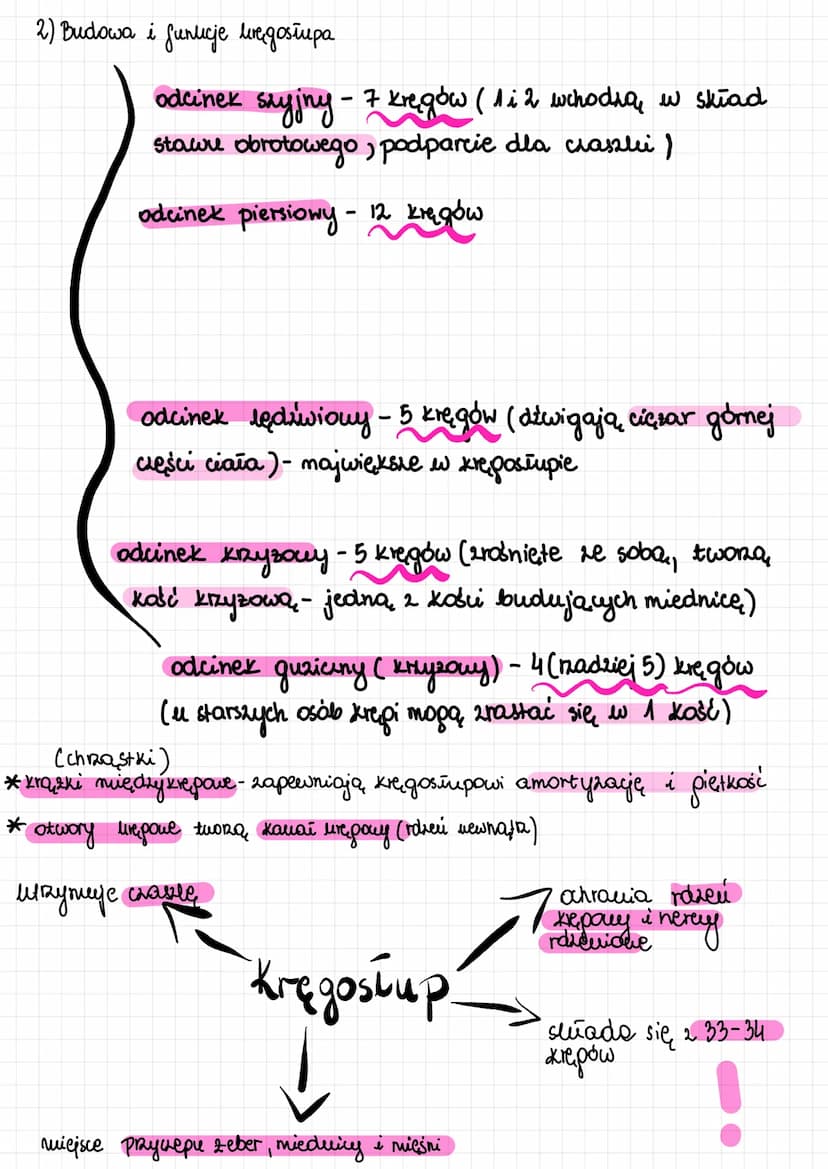 2) Budowa i funkcje kręgosłupa
odcinek szyjny - 7 kręgów ( 1 i 2 wchodzą w skład
stawu obrotowego, podparcie dla czaszki )
odcinek piersiowy - 12 kręgów
odcinek lędźwiowy - 5 kręgów ( dźwigają ciężar górnej
części ciała ) - największe w kręgosłupie
odcinek krzyżowy - 5 kręgów ( zrośnięte ze sobą, tworzą
kość krzyżową - jedną z kości budujących miednicę )
odcinek guziczny ( krzyżowy ) - 4 ( rzadziej 5 ) kręgów
( u starszych osób kręgi mogą zrastać się w 1 kość )
( chrząstki )
* krążki międzykręgowe - zapewniają kręgosłupowi amortyzację i giętkość
* otwory kręgowe tworzą kanał kręgowy ( rdzeń wewnątrz )
utrzymuje czaszkę
ochrania rdzeń
kręgowy i nerwy
rdzeniowe
Kręgosłup
składa się z 33-34
kręgów
!
miejsce przyczepu żeber, miednicy i mięśni